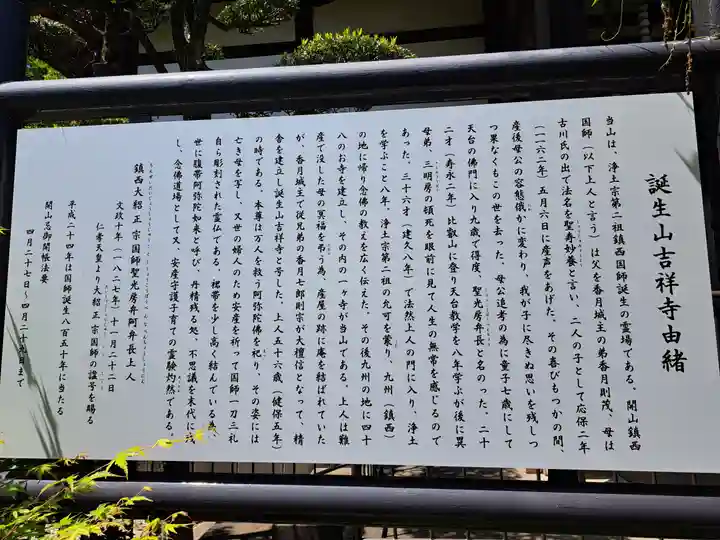 誕生山吉祥寺由緒
当山は、浄土宗第二祖鎮西国師誕生の霊場である。開山鎮西
国師（以下上人と言う）は父を香月城主の弟香月則茂、母は
古川氏の出で法名を聖寿妙養と言い、二人の子として応保二年
（一一六二年）五月六日に産声をあげた。その喜びもつかの間、
産後母公の容態俄かに変わり、我が子に尽きぬ思いを残しつ
つ果なくもこの世を去った。母公追考の為に童子七歳にして
天台の佛門に入り九歳で得度、聖光房弁長と名のった。二十
二才（寿永二年）比叡山に登り天台教学を八年学ぶが後に異
母弟、三明房の頓死を眼前に見て人生の無常を感じるので
あった。三十六才（建久八年）で法然上人の門に入り、浄土
を学ぶこと八年、浄土宗第二祖の允可を蒙り、九州（鎮西）
の地に帰り念佛の教えを広く伝えた。その後九州の地に四十
八のお寺を建立し、その内の一ヶ寺が当山である。上人は難
産で没した母の冥福を弔う為、産屋の跡に庵を結ばれていた
が、香月城主で従兄弟の香月七郎則宗が大檀信となって、精
舎を建立し誕生山吉祥寺と号した。上人五十六歳（健保五年）
の時である。本尊は万人を救う阿弥陀佛を祀り、その姿には
亡き母を写し、又世の婦人のため安産を祈って国師一刀三礼
自ら彫刻された霊仏である。裙帯を少し高く結んでいる為
世に腹帯阿弥陀如来と呼び、丹精残る処、不思議を末代に残
し、念佛道場として又、安産守護子育ての霊験灼然である。
鎮西大紹正宗国師聖光房弁阿弁長上人
文政十年（一八二七年）十一月二十二日
仁孝天皇より大紹正宗国師の諡号を賜る
平成二十四年は国師誕生八百五十年に当たる
開山忌御開帳法要
四月二十七日〜四月二十九日まで